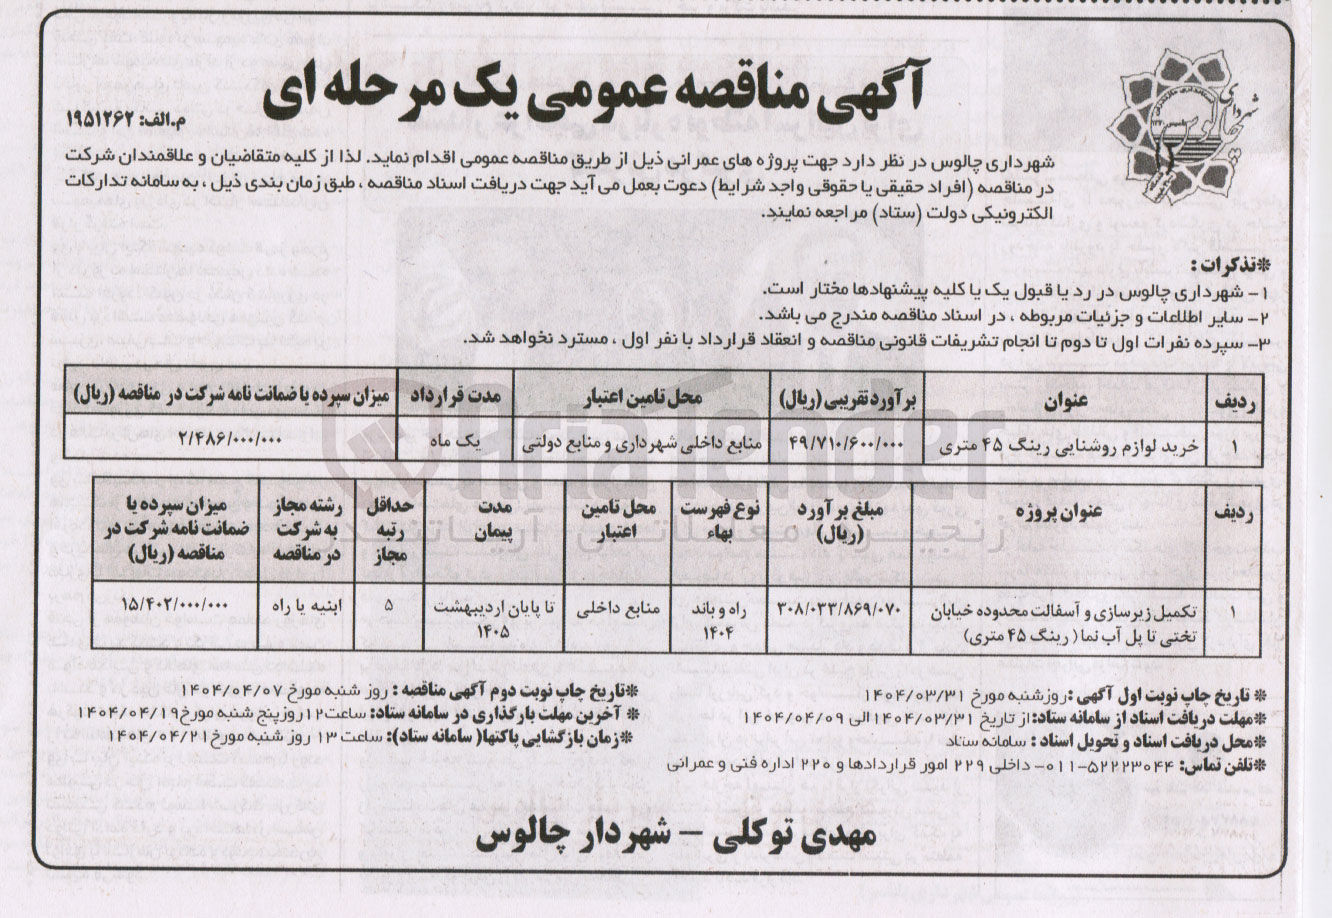 آگهی مناقصه عمومی یک مرحله ای
م.الف: ۱۹۵۱۲۶۲
شهرداری چالوس
شهرداری چالوس در نظر دارد جهت پروژه های عمرانی ذیل از طریق مناقصه عمومی اقدام نماید. لذا از کلیه متقاضیان و علاقمندان شرکت
در مناقصه (افراد حقیقی یا حقوقی واجد شرایط) دعوت بعمل می آید جهت دریافت اسناد مناقصه ، طبق زمان بندی ذیل ، به سامانه تدارکات
الکترونیکی دولت (ستاد) مراجعه نمایند.
*تذکرات :
۱- شهرداری چالوس در رد یا قبول یک یا کلیه پیشنهادها مختار است.
۲- سایر اطلاعات و جزئیات مربوطه ، در اسناد مناقصه مندرج می باشد.
۳- سپرده نفرات اول تا دوم تا انجام تشریفات قانونی مناقصه و انعقاد قرارداد با نفر اول ، مسترد نخواهد شد.
ردیف عنوان برآورد تقریبی (ریال) محل تامین اعتبار مدت قرارداد میزان سپرده یا ضمانت نامه شرکت در مناقصه (ریال)
۱ خرید لوازم روشنایی رینگ ۴۵ متری ۴۹/۷۱۰/۶۰۰/۰۰۰ منابع داخلی شهرداری و منابع دولتی یک ماه ۲/۴۸۶/۰۰۰/۰۰۰
AriaTender
زنجیره معاملاتی آریاتندر
ردیف عنوان پروژه مبلغ برآورد (ریال) نوع فهرست بهاء محل تامین اعتبار مدت پیمان حداقل رتبه مجاز رشته مجاز به شرکت در مناقصه میزان سپرده یا ضمانت نامه شرکت در مناقصه (ریال)
۱ تکمیل زیرسازی و آسفالت محدوده خیابان تختی تا پل آب نما ( رینگ ۴۵ متری) ۳۰۸/۰۳۳/۸۶۹/۰۷۰ راه و باند ۱۴۰۴ منابع داخلی تا پایان اردیبهشت ۱۴۰۵ ۵ ابنیه یا راه ۱۵/۴۰۲/۰۰۰/۰۰۰
* تاریخ چاپ نوبت اول آگهی :روزشنبه مورخ ۱۴۰۴/۰۳/۳۱
*مهلت دریافت اسناد از سامانه ستاد:از تاریخ ۱۴۰۴/۰۳/۳۱ الی ۱۴۰۴/۰۴/۰۹
*محل دریافت اسناد و تحویل اسناد : سامانه ستاد
*تلفن تماس: ۵۲۲۲۳۰۴۴-۰۱۱- داخلی ۲۲۹ امور قراردادها و ۲۲۰ اداره فنی و عمرانی
*تاریخ چاپ نوبت دوم آگهی مناقصه : روز شنبه مورخ ۱۴۰۴/۰۴/۰۷
* آخرین مهلت بارگذاری در سامانه ستاد: ساعت ۱۲روزپنج شنبه مورخ۱۴۰۴/۰۴/۱۹
*زمان بازگشایی پاکتها( سامانه ستاد): ساعت ۱۳ روز شنبه مورخ۱۴۰۴/۰۴/۲۱
مهدی توکلی – شهردار چالوس